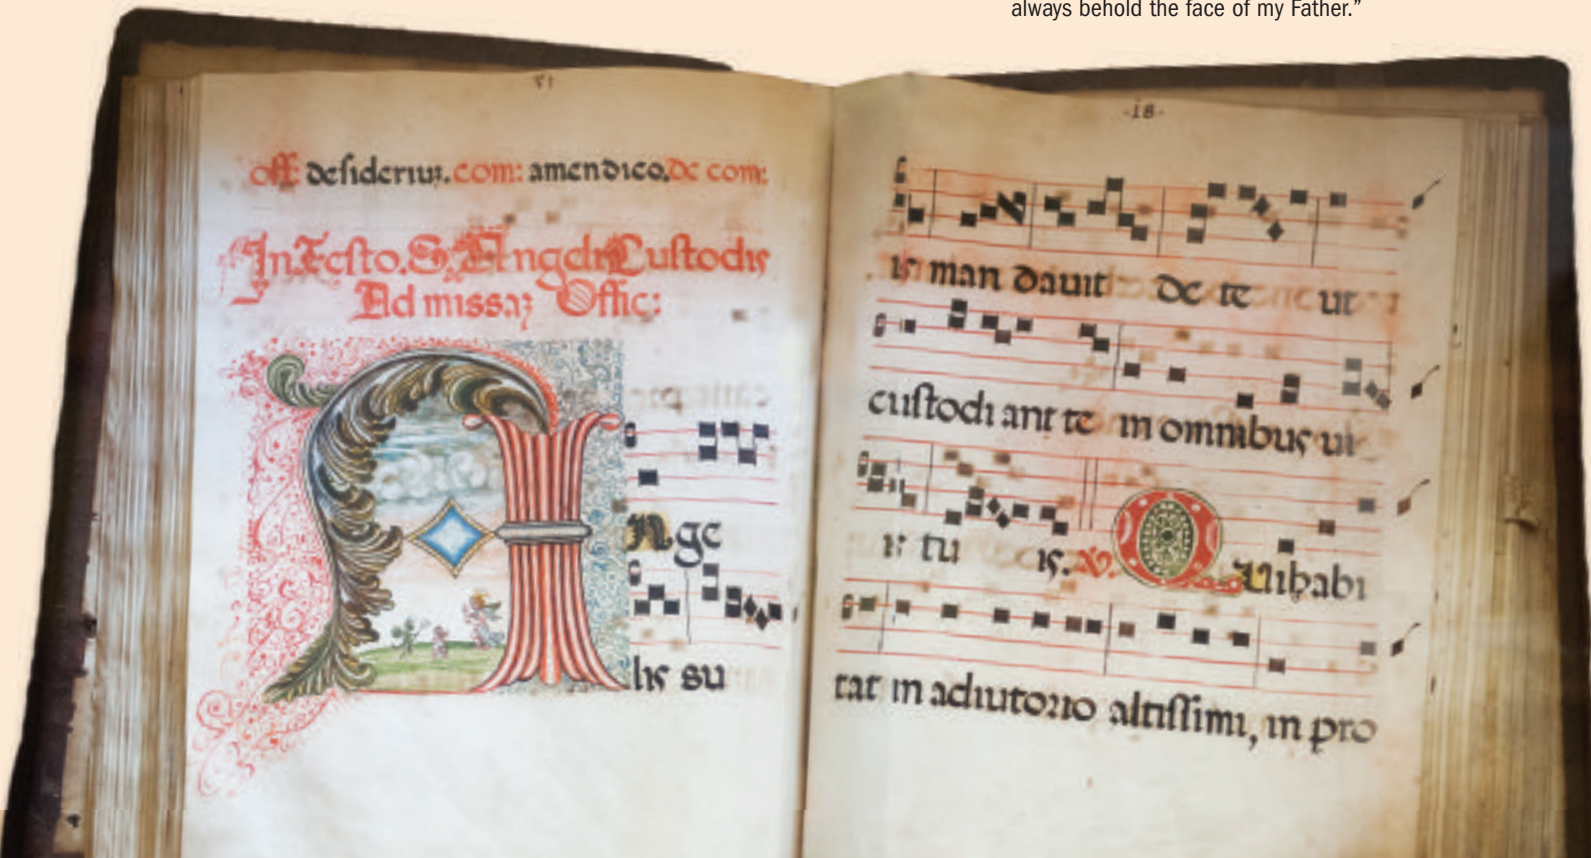 always behold the face of my Father.”
off: desiderium. com: amendico. de com:
In Festo. S. Angeli Custodis
Ad missaz Offic:
Ange
lis su
-18-
is man davit de te ut
custodi ant te in omnibus ui
is tu is. V. Qui habi
tat in adiutorio altissimi, in pro